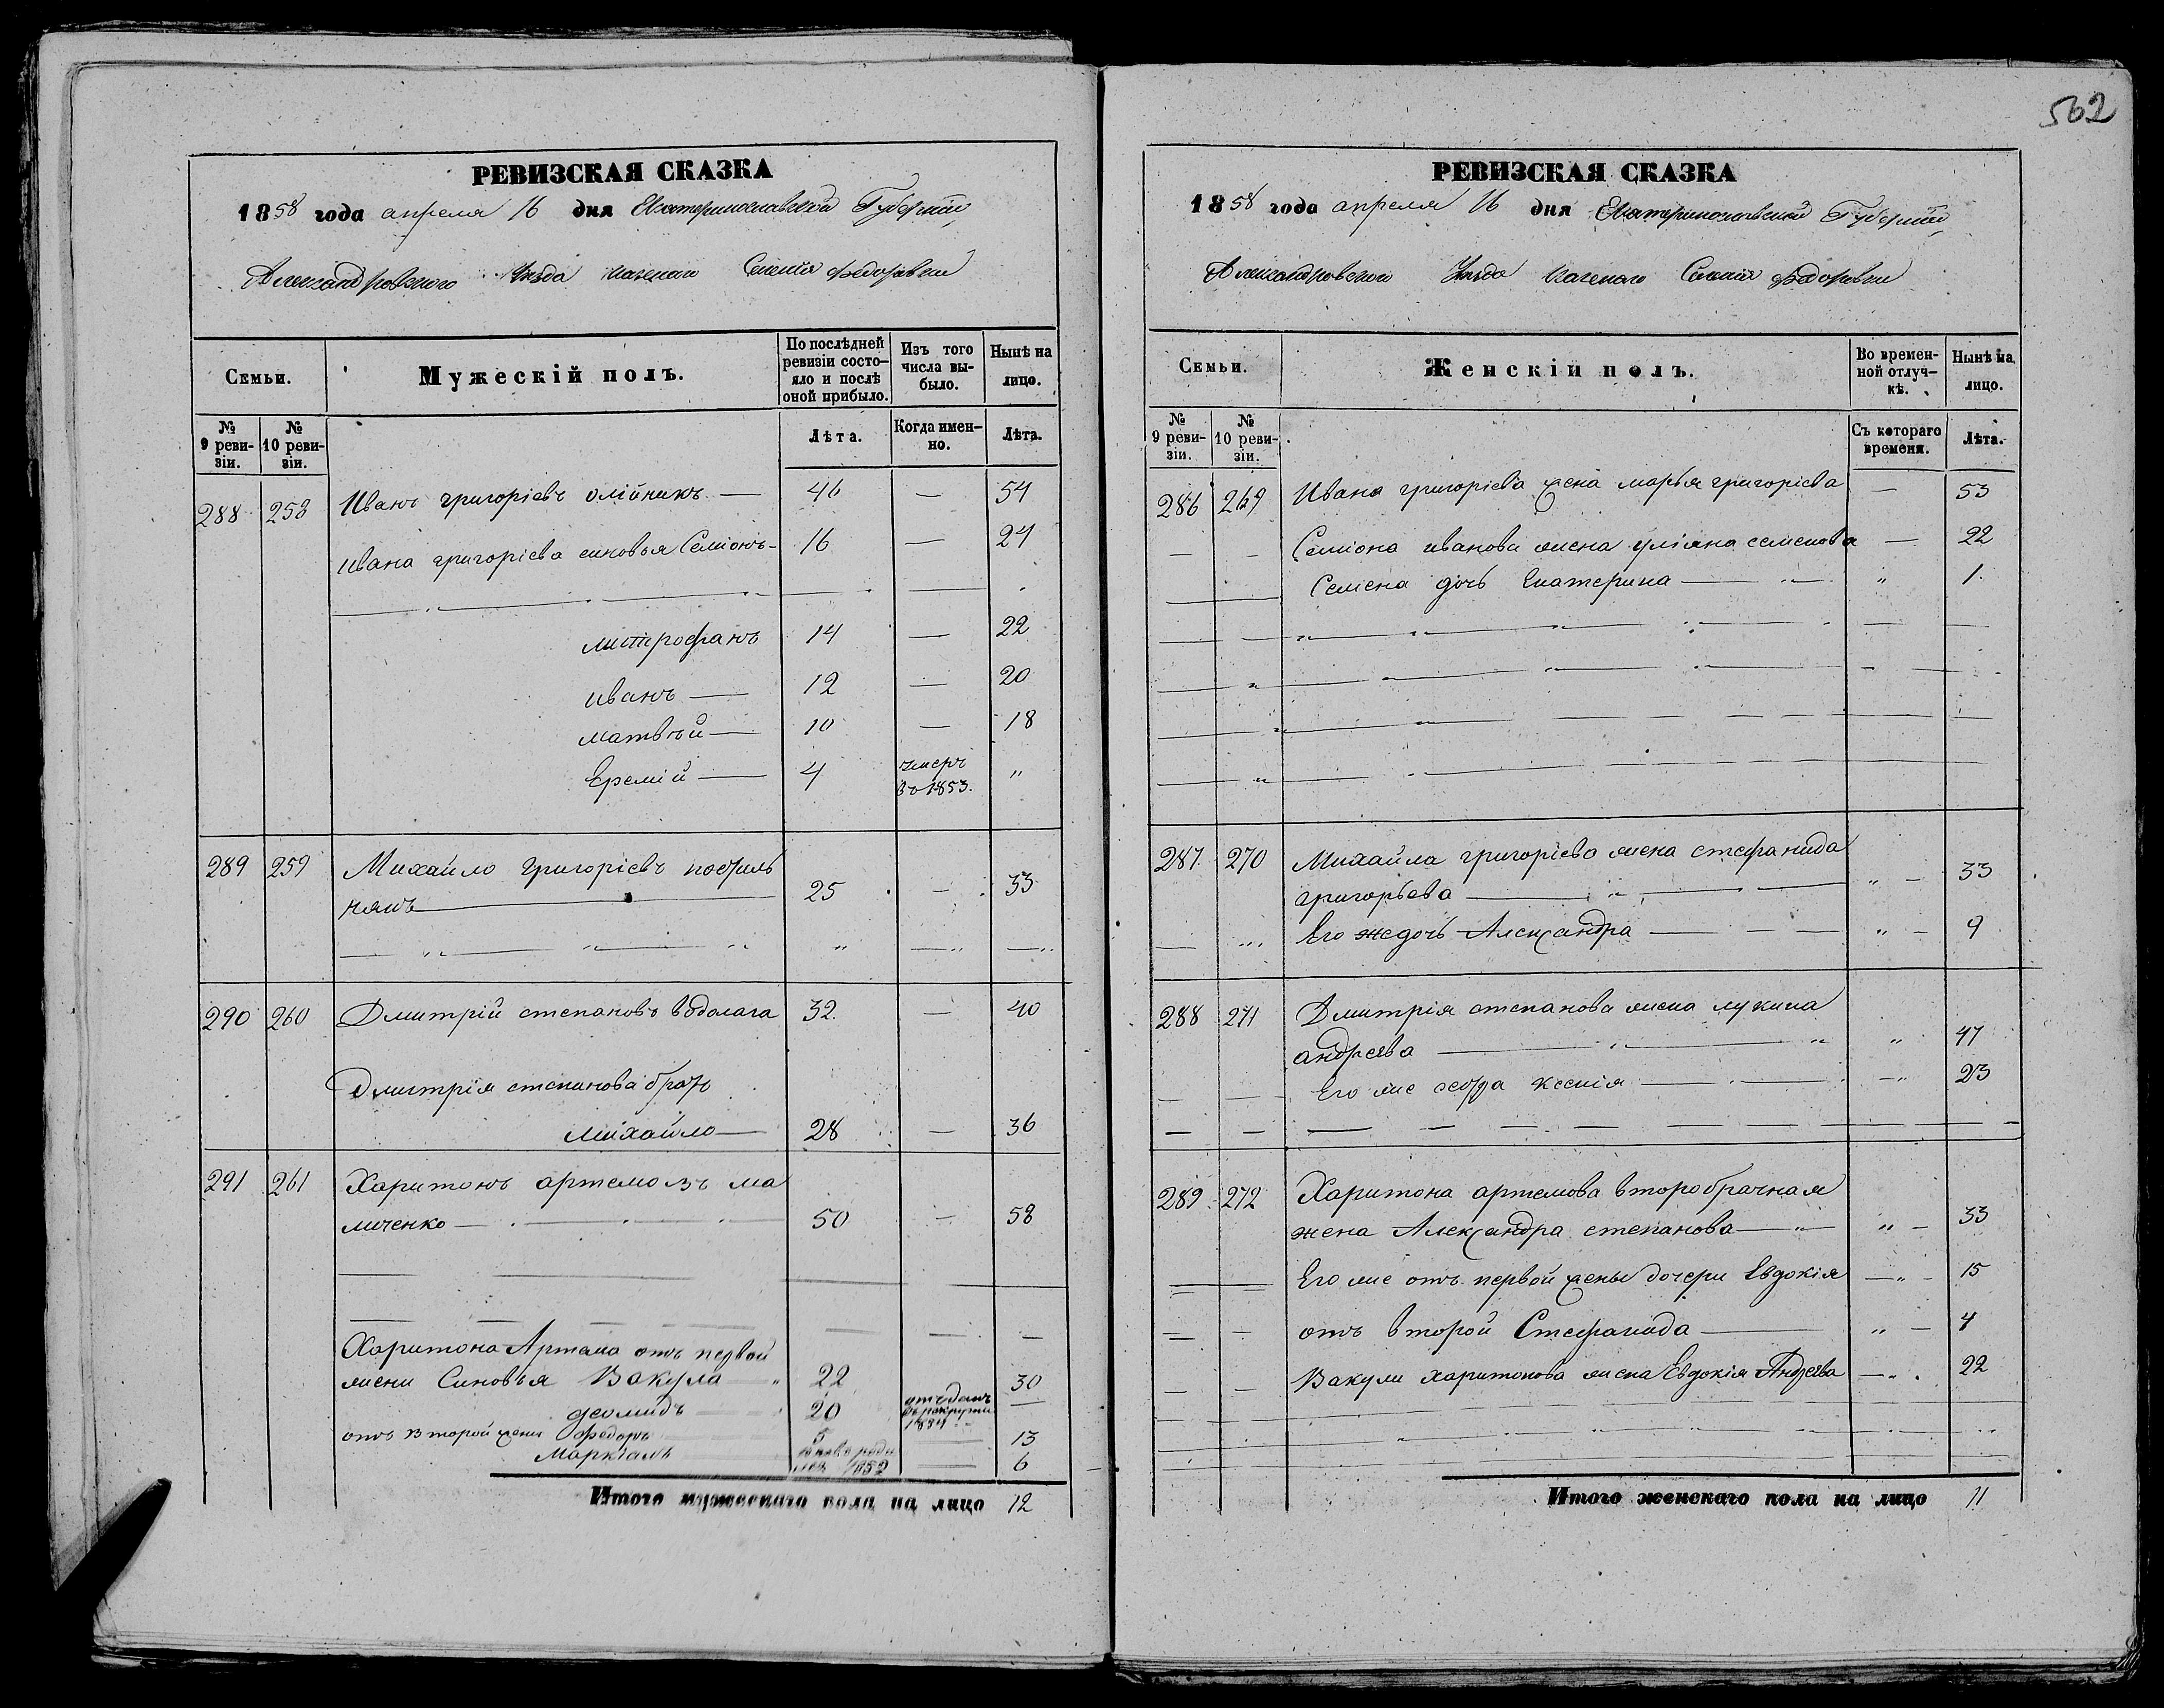 562
РЕВИЗСКАЯ СКАЗКА
1858 года апреля 16 дня Екатеринославской Губерніи,
Александровского Уезда казенаго Селенія Федоровки
Семьи.
Мужескій полъ.
По послѣдней ревизіи состо-
яло и послѣ
оной прибыло.
Изъ того
числа вы-
было.
Нынѣ на
лицо.
№ 9 реви-
зіи.
№ 10 реви-
зіи.
Лѣта.
Когда имен-
но.
Лѣта.
288 258 Иванъ григоріевъ олійникъ — 46 — 54
ивана григоріева сыновья Семіонъ - 16 — 24
митрофанъ 14 — 22
иванъ — 12 — 20
матвѣй — 10 — 18
Еремій — 4 умеръ въ 1853. "
289 259 Михайло григоріевъ
25 — 33
290 260 Дмитрій степановъ водолага 32 — 40
Дмитрія степанова братъ
михайло — 28 — 36
291 261 Харитонъ артемовъ ма
миченко — 50 — 58
Харитона Артема отъ первой
жени Синовья Вакула " 22 30
деомидъ 20 отъданъ въ рекруты —
отъ второй жени Федоръ 5 — 13
Маркіанъ 1852 — 6
Итого мужескаго пола на лицо 12
РЕВИЗСКАЯ СКАЗКА
1858 года апреля 16 дня Екатеринославской Губерніи,
Александровского Уезда казенаго Селенія Федоровки
Семьи.
Женскій полъ.
Во времен-
ной отлуч-
кѣ.
Нынѣ на
лицо.
№ 9 реви-
зіи.
№ 10 реви-
зіи.
Съ котораго
времени.
Лѣта.
286 269 Ивана григоріева жена марья григоріева — 53
Семіона иванова жена уліяна семенова — 22
Семена дочь Екатерина — " 1.
287 270 Михайла григоріева жена стефанида
григорьева — " — 33
Его же дочь Александра — " — 9
288 271 Дмитрія степанова жена
андреева — " 47
Его же сестра ксенія — " 23
289 272 Харитона артемова второбрачная
жена Александра степанова — " — 33
Его же отъ первой жены дочери Евдокія — " — 15
отъ второй Стефанида — " — 4
Вакули харитонова жена Евдокія Андреева — " . 22
Итого женскаго пола на лицо 11